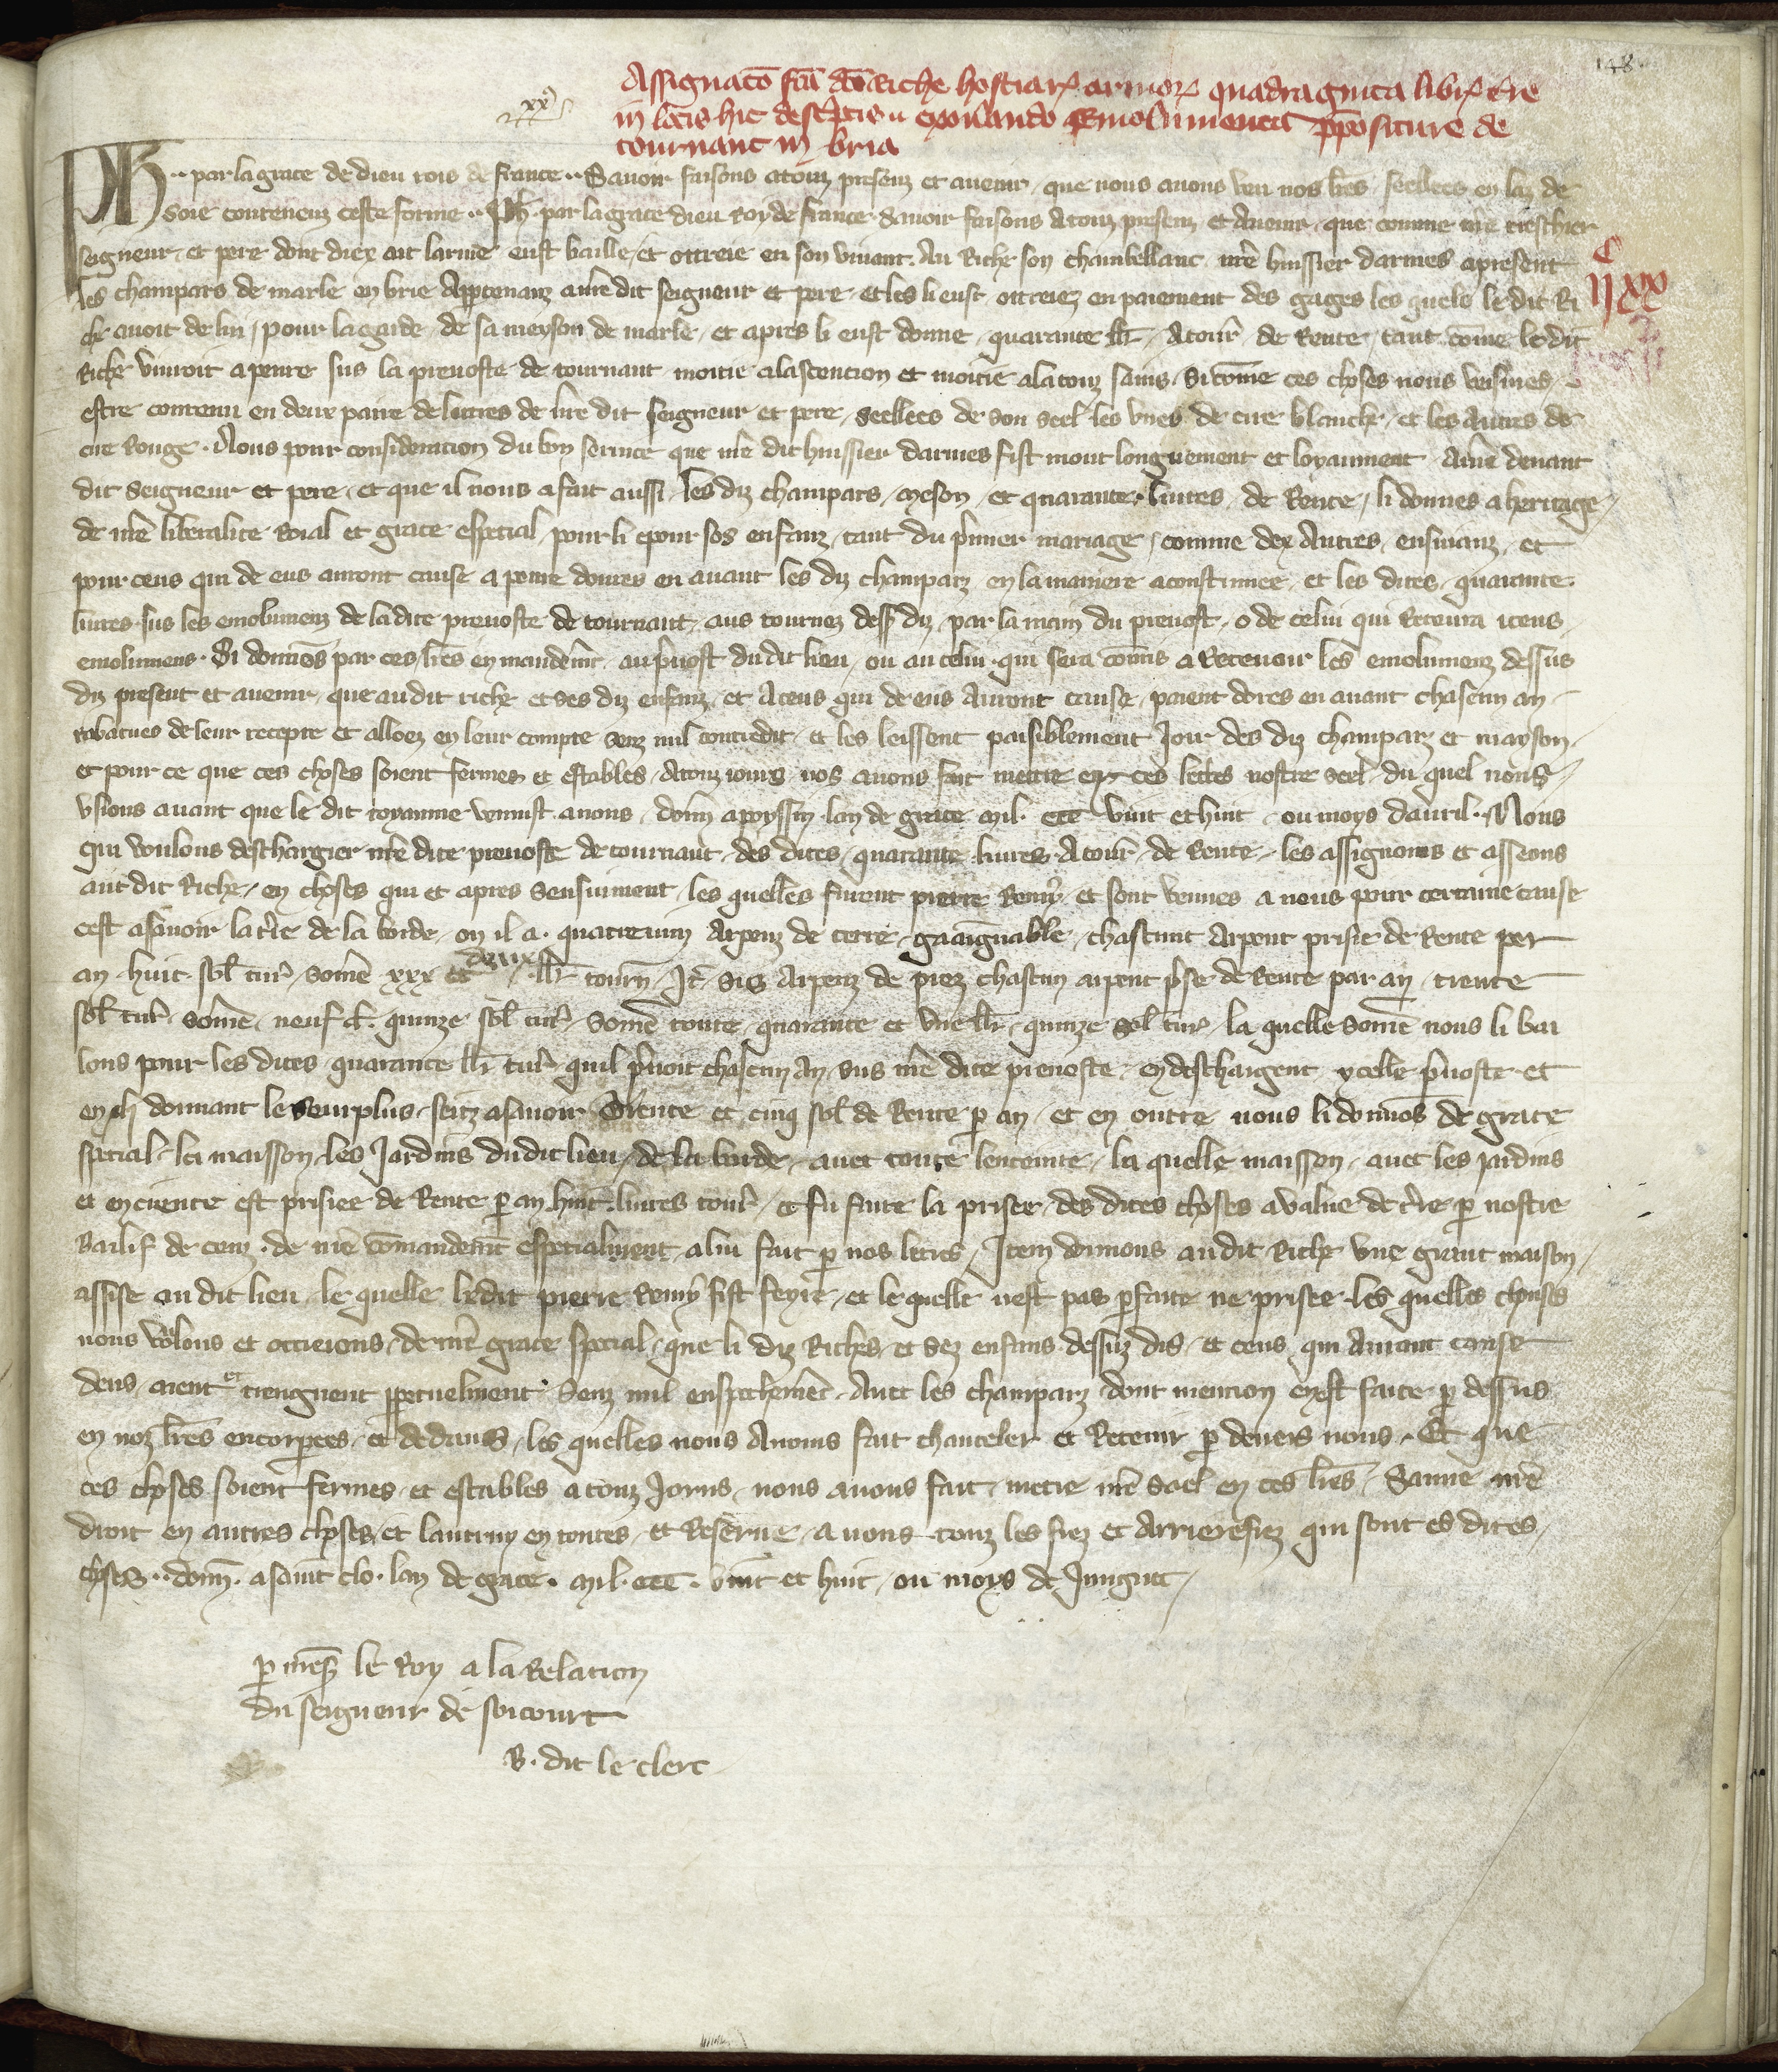 148.
Assignatō fc̄a dc̄o Riche hostiar' armor' quadraginta libr' t're
in locis hic desc̄ptis exon'ando Emolumenta p̄posit̄ure de
tournant in bria
Ph ·· par la grace de dieu rois de france ·· Sauoir faisons a touz presenz et auenir / que nous auons veu nos lr̄es / seellees en laz de
soie contenenz ceste forme ·· Ph. par la grace dieu Roy de france. sauoir faisons A touz presenz et Auenir / que comme nr̄e treschier
seigneur / et pere dont diex ait larme eust baille / et ottreie en son viuant. Au Riche son chambellanc / nr̄e huissier darmes apresent
les champars de marle en brie Appartenanz a nr̄e dit seigneur et pere / et les li eust ottreiez en paiement des gages les quels le dit Ri
che auoit de lui / pour la garde / de sa meyson de marle / et apres li eust donne / quarante lb̄ / Atour' de Rente / tant cōme le dit
Riche viuroit a penre sus la preuoste de tournant moitie a lascention et moitie a la touz sains / si cōme ces choses nous veismes /
estre contenu en deux paire de lettres de nr̄e dit seigneur et pere / seellees de son seel les vnes de cire blanche / et les autres de
cire Rouge · Nous pour consideration du bon seruice que nr̄e dit huissier darmes fist mout longuement et loyaument A nr̄e deuant
dit Seigneur et pere / et que il nous a fait aussi / les diz champars / meson / et quarante liures / de Rente / li donnes a heritage /
de nr̄e liberalite Roial et grace especial / pour li e pour ses enfanz / tant du p'mier mariage / comme dex Autres / ensiuanz / et
pour ceus qui de eus auront cause a penre dores en auant les diz champarz en la maniere acoustumee / et les dites / quarante
liures sus les emolumenz de la dite preuoste de tournant / aus termes dess' diz / par la main du preuost / o de celui qui Receura iceus
emolumens · Si donnōs par ces lr̄es en mandem̄t au p'uost du dit lieu / ou au celui qui sera cōmis a Receuoir les emolumenz dessus
diz present et auenir / que au dit riche et ses diz enfanz / et A ceus qui de eus Auront cause / paient dores en auant chascun an
rabatues de leur recepte et alloez en leur compte senz nul contredit / et les leissent paisiblement Ioir des diz champarz et mayson /
et pour ce que ces choses soient fermes et estables / A touz iours nos auons fait mettre en ces lettres nostre seel / du quel nous /
vsions auant que le dit royaume venist a nous / donn' a poyssi lan de grace mil · ccc vint et huit / ou moys dauril · Nous
qui voulons deschargier nr̄e dite preuoste de tournant / des dites / quarante liures Atour' de Rente / les assignons et asseons
aut dit Riche / en choses qui et apres sensuiuent / les quelles furent pierre Remy / et sont venues a nous pour certaine cause
cest asauoir la t're de la borde / ou il a · quatreuinz Arpenz de terre / gaaignable / chascunt Arpent prisie de Rente per
an huit sol' tur' somē xxx et deux lb̄ tourn' / It' sis Arpenz de prez chascun arpent p'se de Rente par an / trente
sol' tur' somē neuf lb̄ · quinze sol' tur' somē toute / quarante et vne lb̄ / quinze sol' tur' la quelle somē nous li bai
lons pour les dites quarante lb̄ tur' quil p'noit chascun An / sus nr̄e dite preuoste / en deschargent ycelle p'uoste et
en li donnant le seurplus / seitz asauoir Trente et cinq sol' de Rente p an / et en outre nous li donnōs de grace
special / la maisson les Iardins du dit lieu / de la borde / auec toute lenceinte / la quelle maisson / auec les jardins
et enceinte est prisiee de Rente p an huit liures tour' / et fu faite la prisee / des dites choses a value de t're p nostre
Bailif de cenz · de nr̄e cōmandem̄t especialment / a lui fait p nos lettres / Item donnons au dit Riche vne grant maison /
assise au dit lieu / le quelle le dit pierre Remy fist feyre / et le quelle nest pas p'faite ne prisee / les quelles choses
nous volons et ottreions / de nr̄e grace special / que li diz Riches / et sez enfans dessuz dis / et ceus qui Auront cause
deus / aient et tiengnent ppetuelment / senz nul enspechem̄t / Auec les champarz dont mention en est faite p dessus
en noz lr̄es encorpees / et dedans / les quelles nous Auons fait chanceler et Retenir p deuers nous · Et que
ces choses soient fermes / et estables a touz Iorns / nous auons fait / metre nr̄e seel en ces lr̄es / Sauue nr̄e
droit en autres choses / et lautruy en toutes / et Reserue / a nous touz les fiez et Arrierefiez qui sont es dites /
choses ·· donn' · a saint clo · lan de grace · mil · ccc · vint et huit / ou moys de Iungnet /
p mess' le Roy a la Relation
du seigneur de soicourt
B · dit le clerc